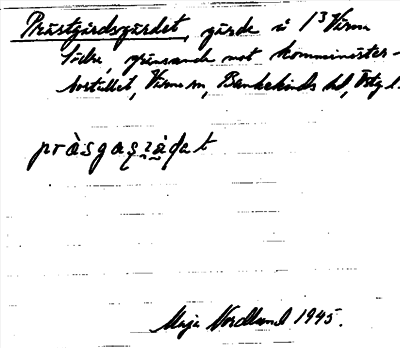 Prästgårdsgärdet, gärde i 1³ Värna
Södra, gränsande mot komminister-
bostället, Värna sn, Bankekinds hd, Östg l.
pràsgaʂɪ̀ạ̈ḍat
Maja Nordlund 1945.